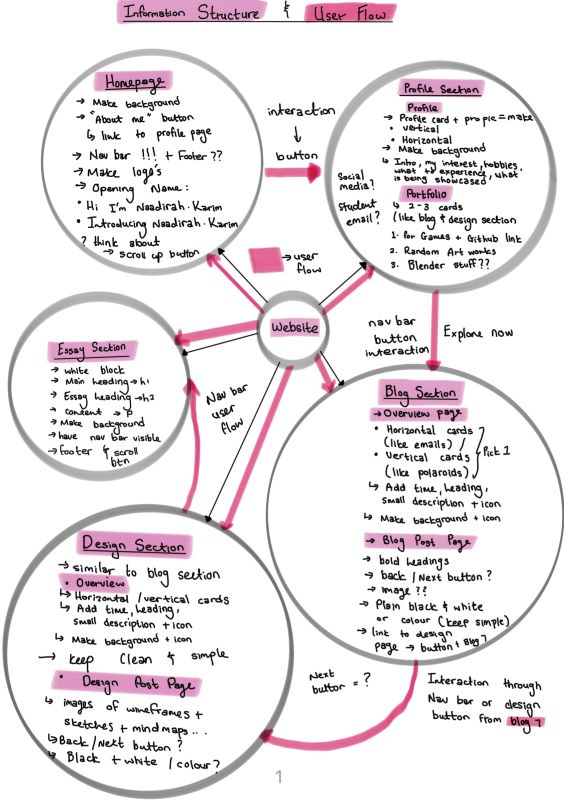 Information Structure & User Flow
Homepage
→ Make background
→ "About me" button
↳ link to profile page
→ Nav bar !!! + Footer ??
→ Make logo's
→ Opening Name:
• Hi I'm Naadirah.Karim
• Introducing Naadirah.Karim
? think about
→ scroll up button
interaction
↓
button
Profile Section
Profile
→ Profile card + pro pic = make
• vertical
• Horizontal
→ Make background
↳ Intro, my interest, hobbies,
what + experience, what
is being showcased.
Portfolio
↳ 2-3 cards
(like blog & design section
1. for Games + Github link
2. Random Art works
3. Blender stuff??
social
media?
student
email?
→ user
flow
Website
Essay Section
→ white block
→ Main heading → h1
→ Essay heading → h2
→ content → p
→ Make background
→ have nav bar visible
→ footer & scroll
btn
Nav bar
user
flow
nav bar
button
interaction
Explore now
Blog Section
→ Overview page
• Horizontal cards
(like emails) /
• Vertical cards
(like polaroids)
Pick 1
↳ Add time, heading,
small description + icon
↳ Make background + icon
→ Blog Post Page
→ bold headings
→ back / Next button ?
→ image ??
→ Plain black & white
or colour (keep simple)
→ link to design
page → button + Blog 7
Design Section
→ similar to blog section
• Overview
↳ Horizontal / vertical cards
↳ Add time, heading,
small description + icon
↳ Make background + icon
→ keep clean & simple
• Design Post Page
↳ images of wireframes +
sketches + mindmaps...
↳ Back / Next button ?
↳ Black + white / colour?
Next
button = ?
Interaction through
Nav bar or design
button from blog 7
1